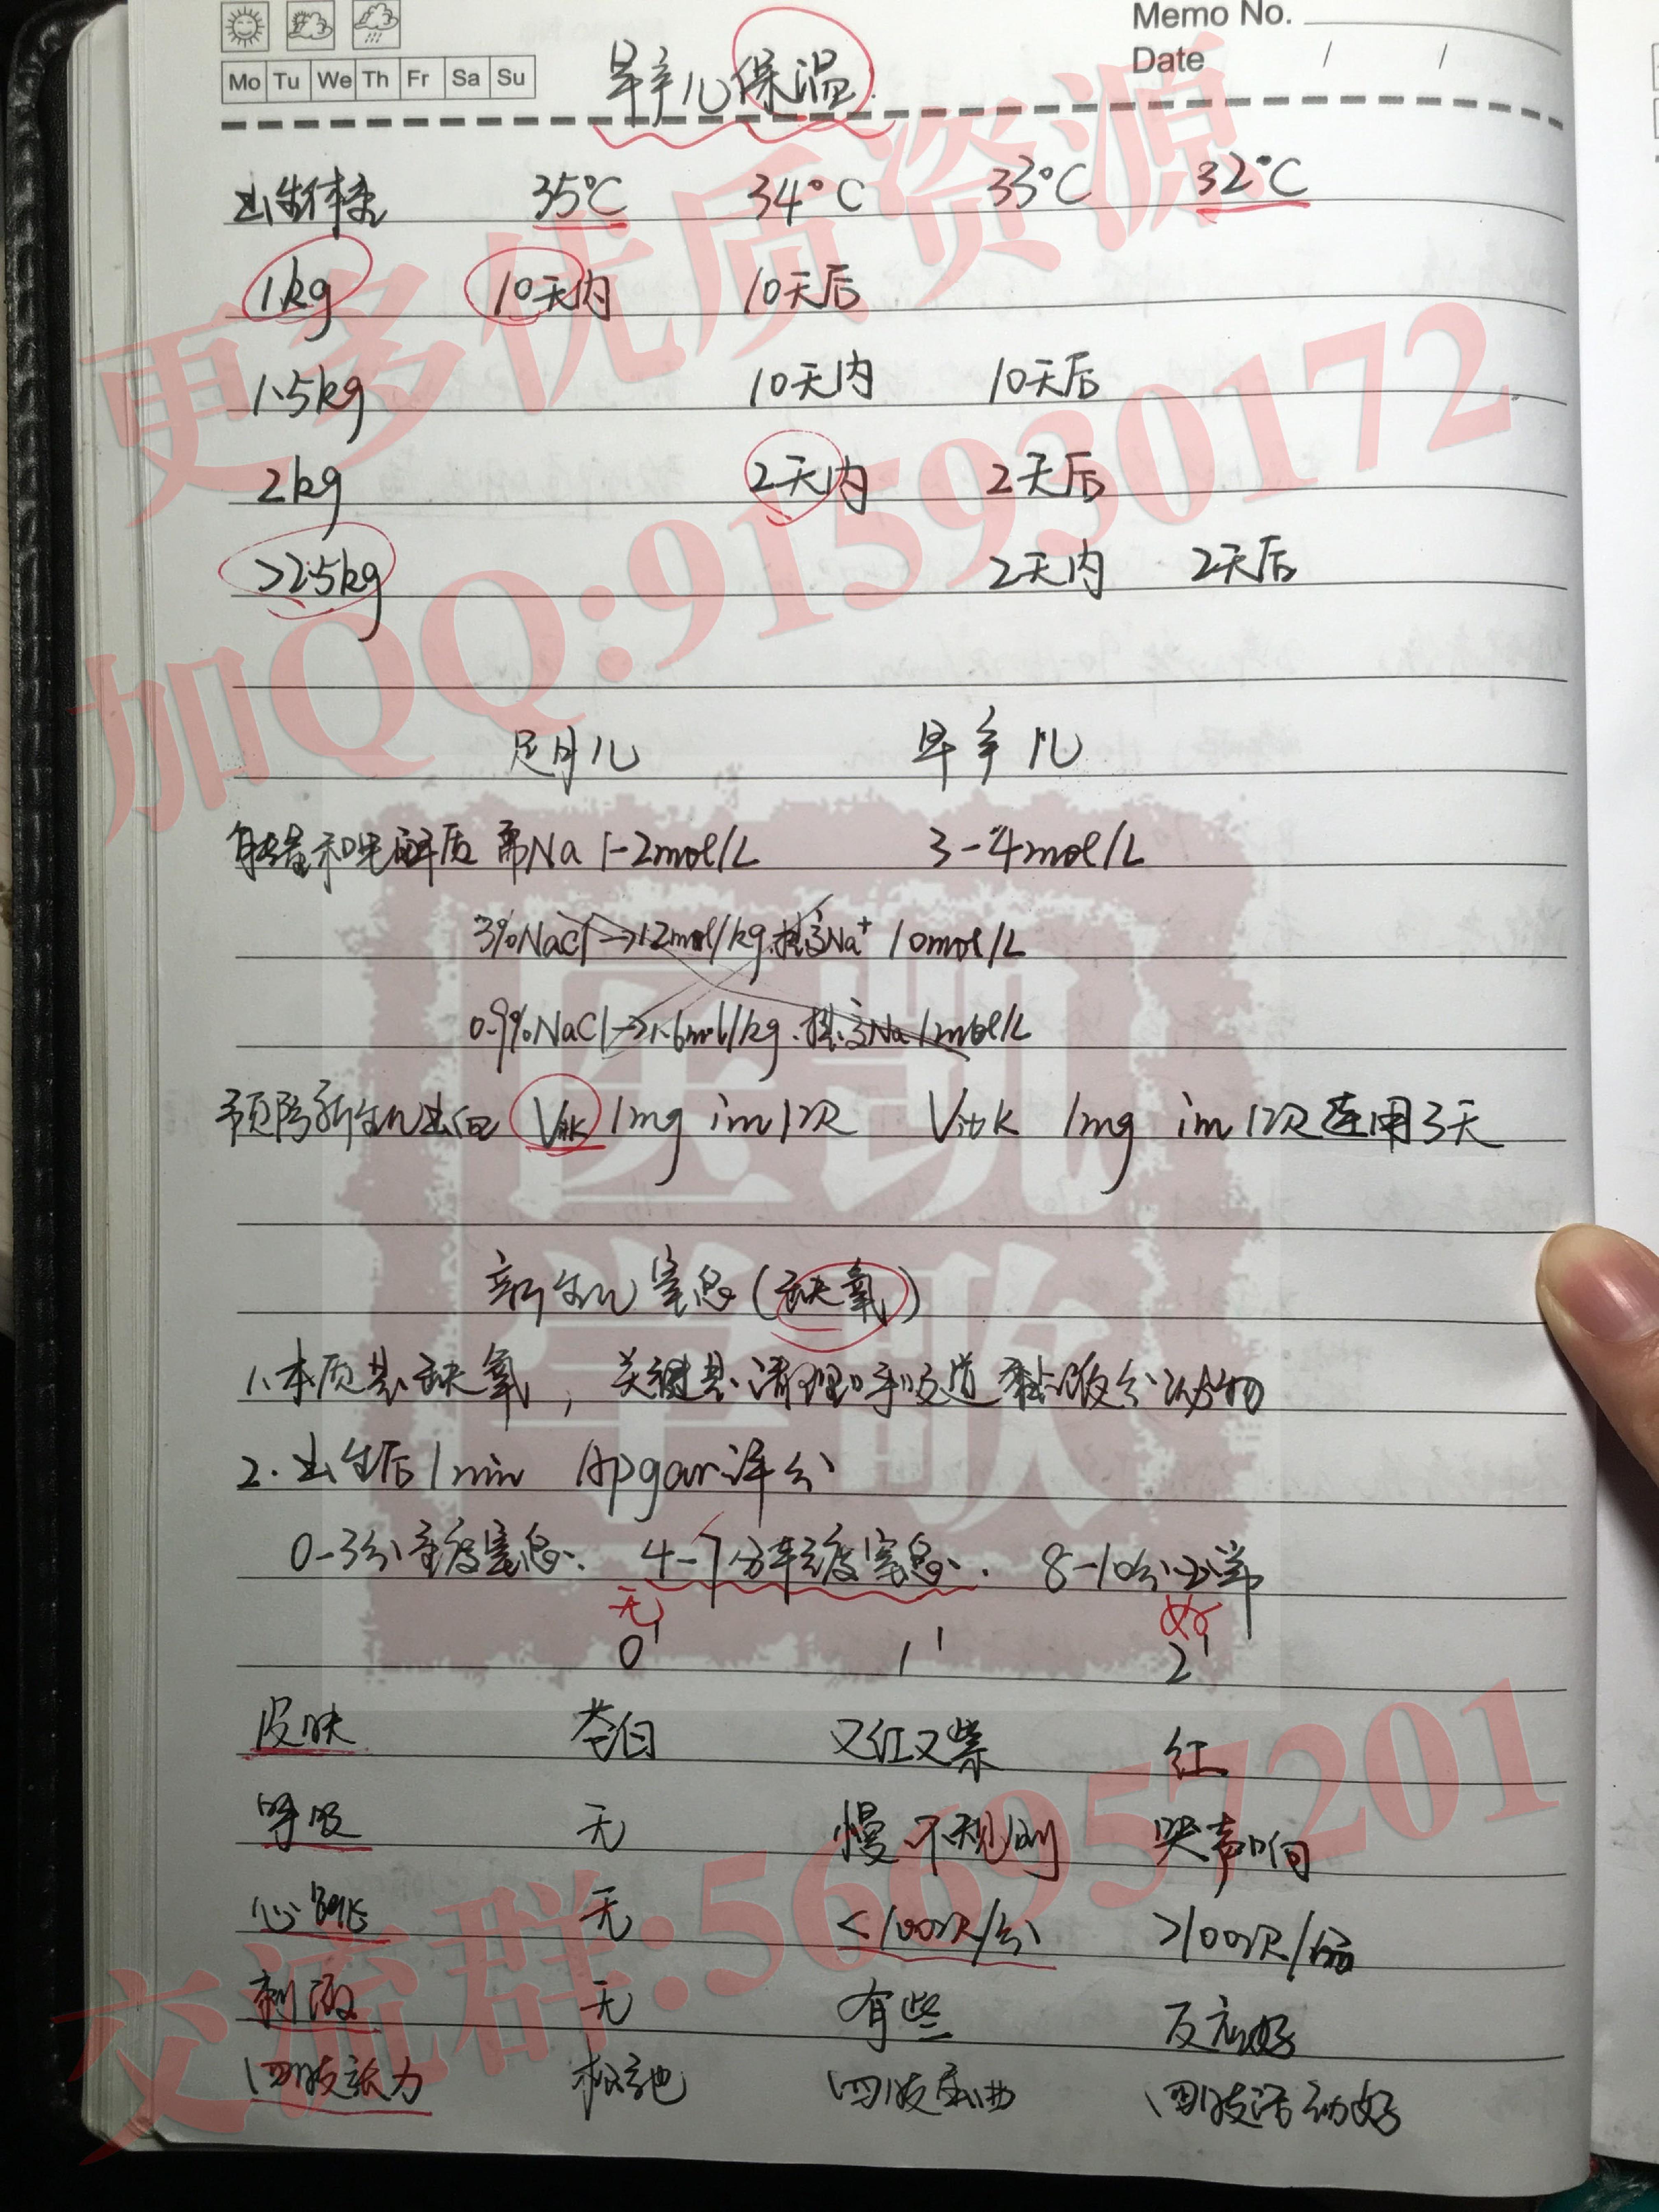 Memo No.
Mo Tu We Th Fr Sa Su
Date / /
早产儿保温
出生体重 35°C 34°C 33°C 32°C
1kg 10天内 10天后
1.5kg 10天内 10天后
2kg 2天内 2天后
>2.5kg 2天内 2天后
足月儿 早产儿
和电解质 需Na 1-2mol/L 3-4mol/L
3%NaCl→12mol/kg.提高Na⁺ 10mol/L
0.9%NaCl→1.6mol/kg.提高Na 1mol/L
预防新生儿出血 VitK 1mg im 1次 VitK 1mg im 1次 连用3天
新生儿窒息(缺氧)
1.本质是缺氧,关键是清理呼吸道黏液分泌物
2.出生后1min Apgar评分
0-3分重度窒息. 4-7分轻度窒息. 8-10分正常
无 好
0' 1' 2'
皮肤 苍白 又红又紫 红
呼吸 无 慢 不规则 哭声响
心跳 无 <100次/分 >100次/分
刺激 无 有些 反应好
四肢张力 松弛 四肢屈曲 四肢活动好
更多优质资源
加QQ:915930172
医凯
学歌
交流群:566957201